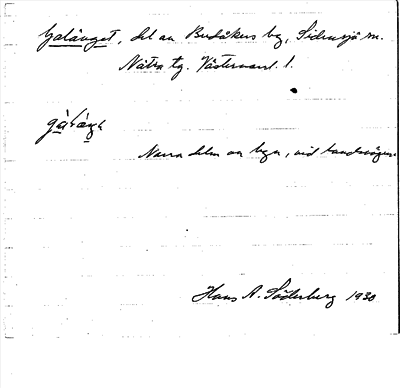 Galänget, del av Budåkers by, Sidensjö sn.
Nätra tg. Västernorrl. l.
Norra delen av byn, vid landsvägen.
Hans A. Söderberg 1930